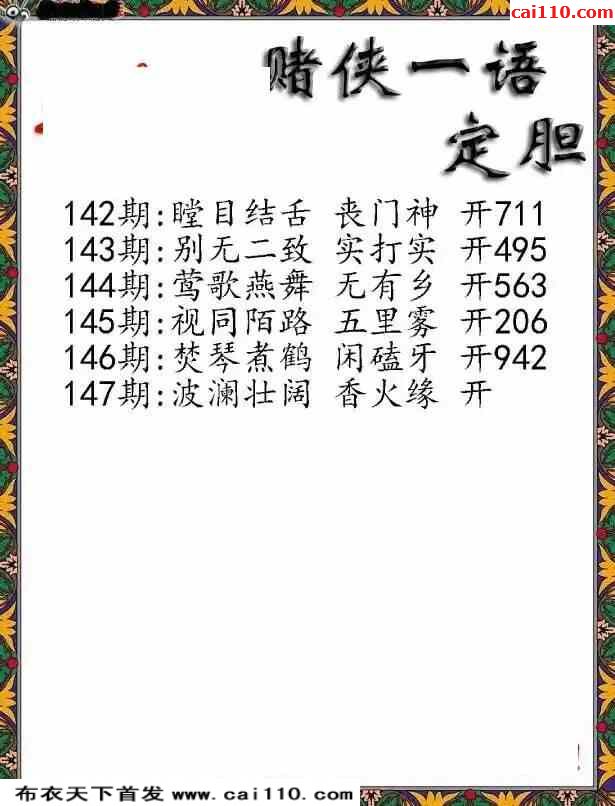 cai110.com
赌侠一语
定胆
142期:瞠目结舌 丧门神 开711
143期:别无二致 实打实 开495
144期:莺歌燕舞 无有乡 开563
145期:视同陌路 五里雾 开206
146期:焚琴煮鹤 闲磕牙 开942
147期:波澜壮阔 香火缘 开
布衣天下首发 www.cai110.com